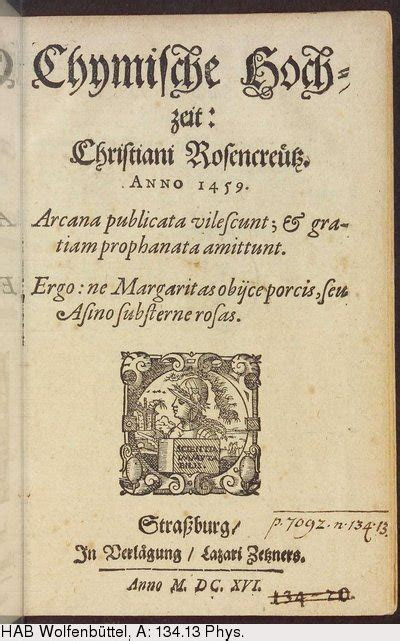 Chymische Hoch-
zeit:
Christiani Rosencreütz.
ANNO 1459.
Arcana publicata vilescunt; & gra-
tiam prophanata amittunt.
Ergo: ne Margaritas obijce porcis, seu
Asino substerne rosas.
SCIENTIA
IMMUTA
BILIS.
p. 7092. n. 134.13.
Straßburg/
In Verlägung / Lazari Zetzners.
Anno M. DC. XVI.
134-20
HAB Wolfenbüttel, A: 134.13 Phys.